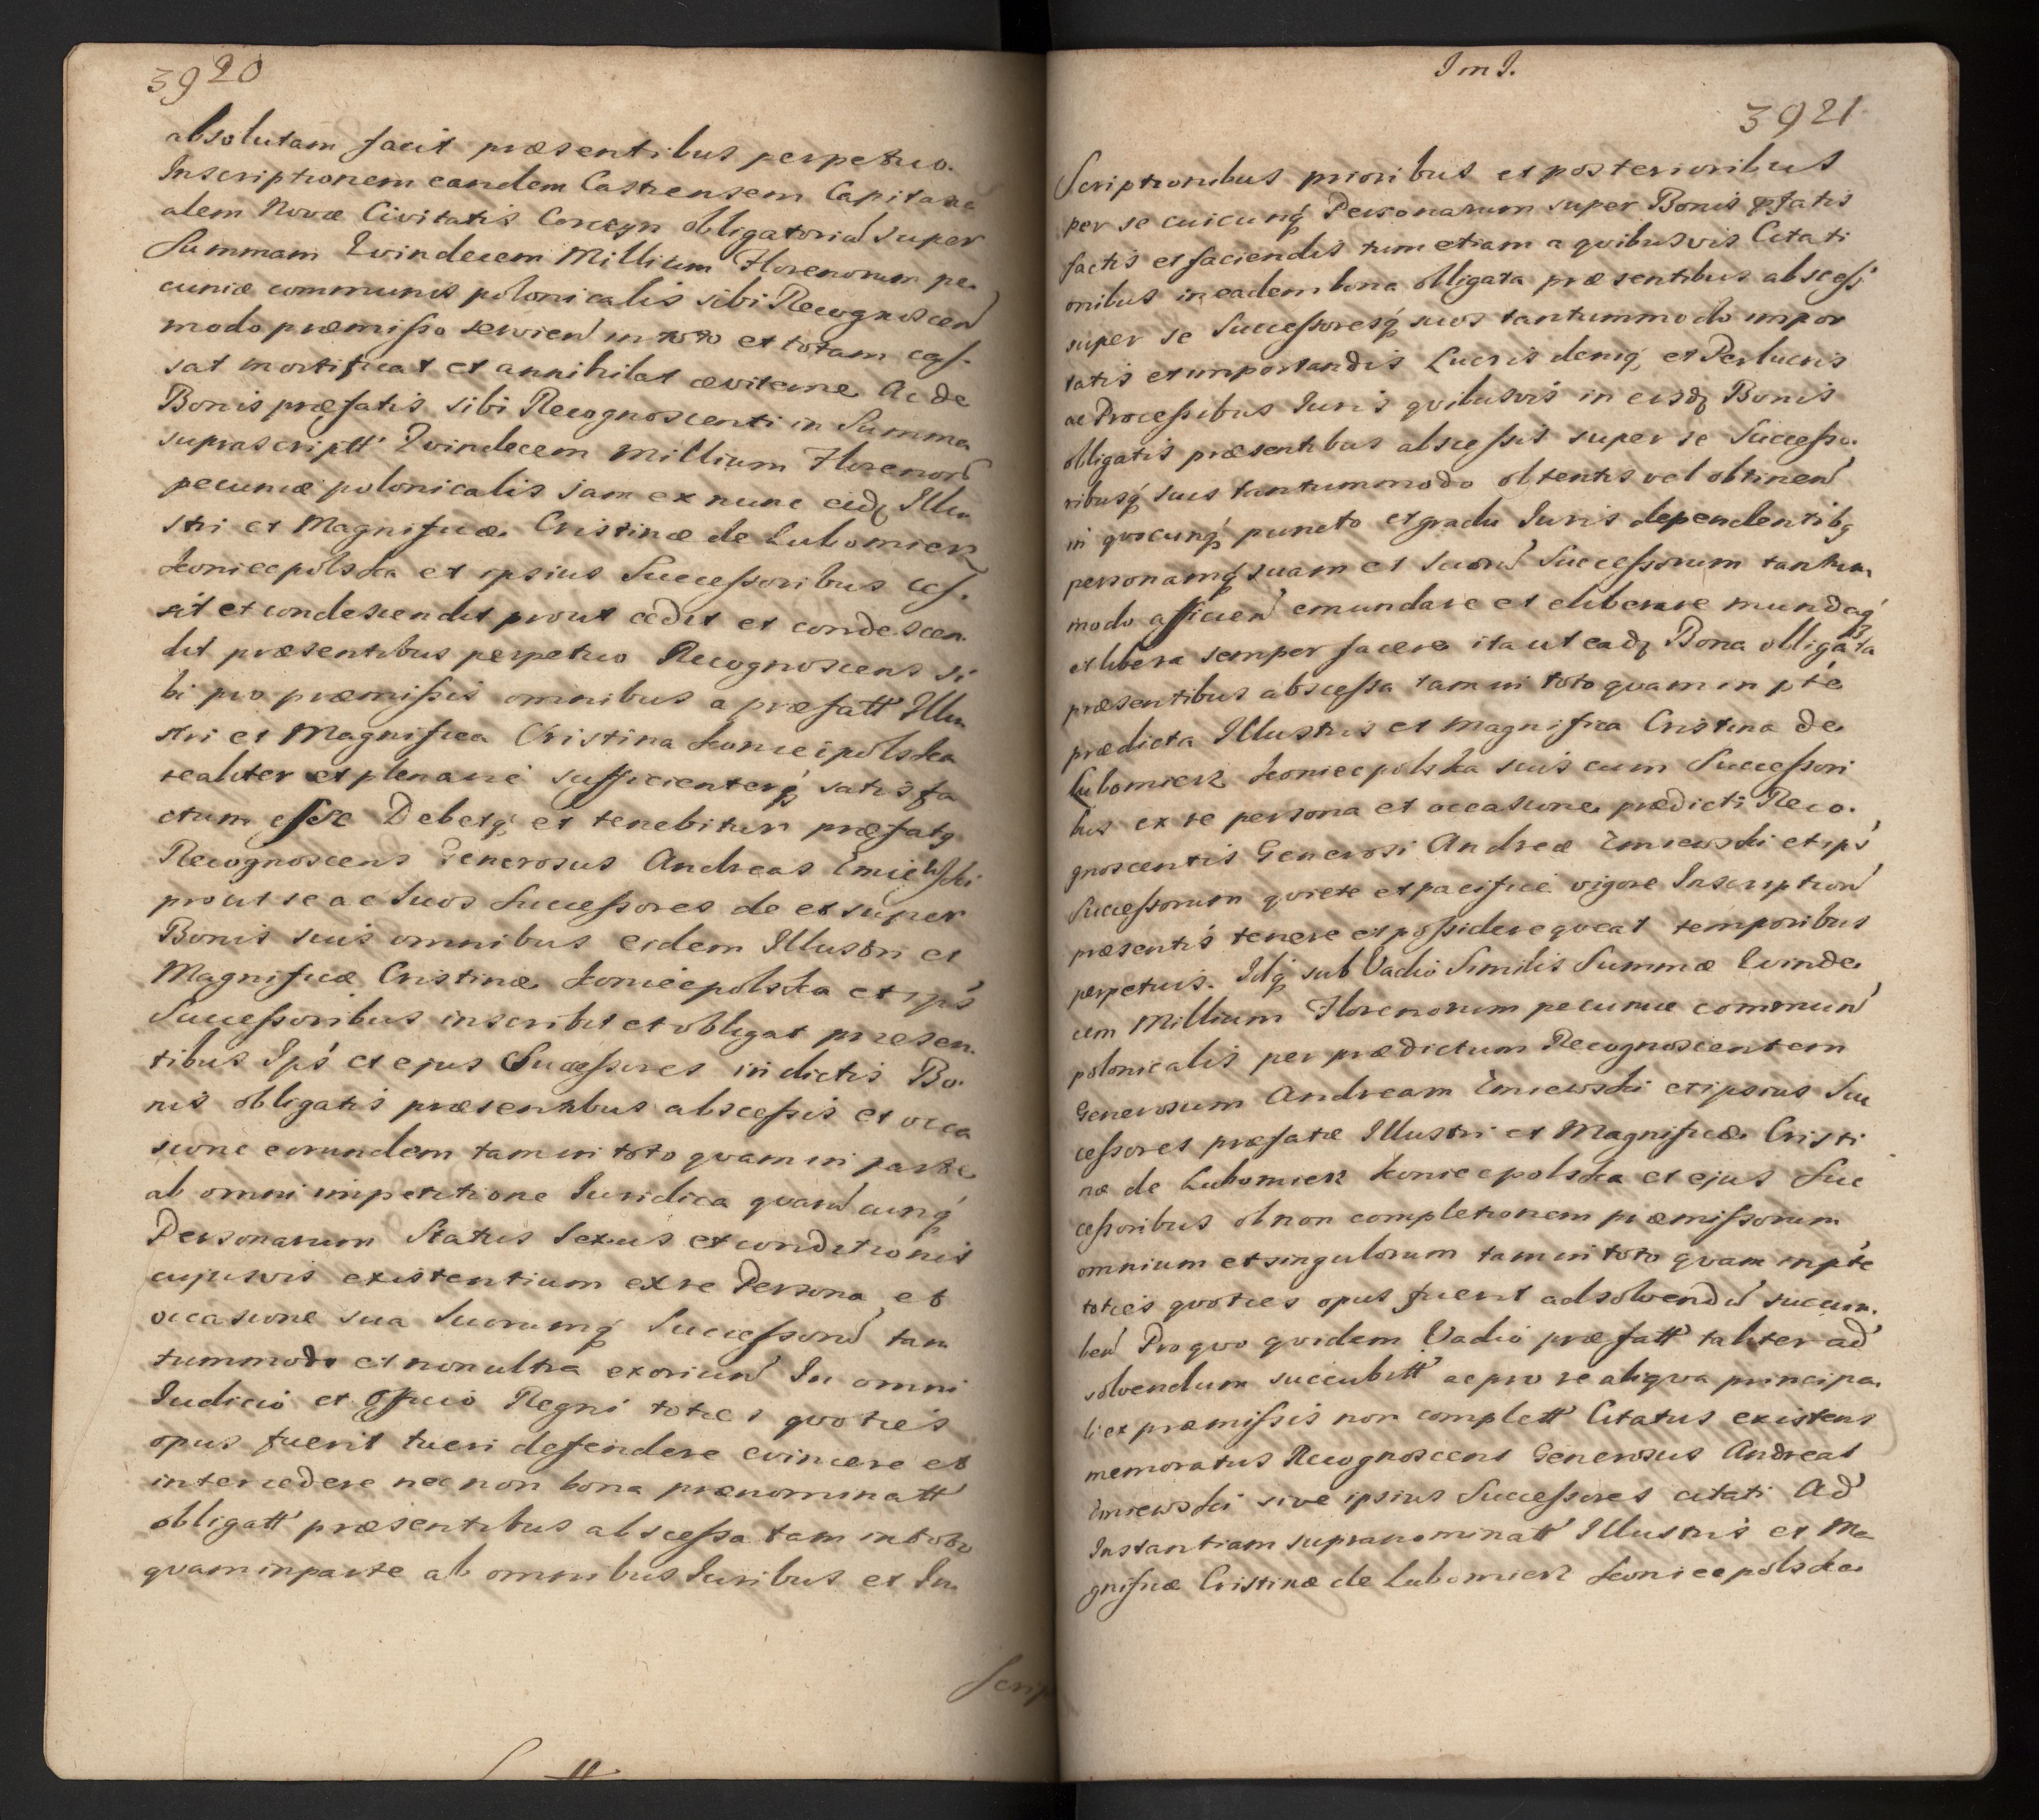 3920
absolutam facit præsentibus perpetuo.
Inscriptionem eandem Castrensem Capitane
alem Novæ Civitatis Corczyn obligatoriã super
Summam Qvindecem Millium Florenorum pe
cuniæ communis polonicalis sibi Recognoscen
modo præmisso servien in toto et totam cas-
sat mortificat et annihilat æviterne Ac de
Bonis præfatis sibi Recognoscenti in Summa
suprascriptt Qvindecem Millium Florenorũ
pecuniæ polonicalis jam ex nunc eidq Illu
stri et Magnificæ Cristinæ de Lubomierz
Koniecpolska et ipsius Successoribus ces-
sit et condescendit prout cedit et condescen
dit præsentibus perpetuo Recognoscens si
bi pro præmissis omnibus a præfatt Illu
stri et Magnifica Cristina Koniecpolska
realiter et plenariè sufficienterq satisfa
ctum esse Debetq et tenebitur præfatq
Recognoscens Generosus Andreas Zmiewski
prout se ac Suos Successores de et super
Bonis suis omnibus eidem Illustri et
Magnificæ Cristinæ Koniecpolska et ips
Successoribus inscribit et obligat præsen-
tibus Ips et ejus Successores in dictis Bo-
nis obligatis præsentibus abscessis et occa
sione eorundem tam in toto qvam in parte
ab omni impetitione Iuridica qvarũcunq
Personarum Status Sexus et conditionis
cujusvis existentium ex re Persona et
occasione sua Suorumq Successorũ tan
tummodo et non ultra exoriun In omni
Iudicio et Officio Regni toties qvoties
opus fuerit tueri defendere evincere et
intercedere nec non bona prænominatt
obligatt præsentibus abscessa tam in toto
qvam in parte ab omnibus Iuribus et In
Scrip
I m I.
3921
Scriptionibus prioribus et posterioribus
per se cuicunq Personarum super Bonis pfatis
factis et faciendis tum etiam a qvibusvis Citati
onibus in eadem bona obligata præsentibus abscess
super se Successoresq suos tantummodo impor
tatis et importandis Lucris deniq et Perlucris
ac Processibus Iuris qvibusvis in eisdq Bonis
obligatis præsentibus abscessis super se Successo-
ribusq suis tantummodo obtentis vel obtinen
in qvocunq puncto et gradu Iuris dependentibq
personamq suam et Suorũ Successorum tantum
modo afficien emundare et eliberare mundaq
et libera semper facere ita ut eadq Bona obligata
præsentibus abscessa tam in toto qvam in pte
prædicta Illustris et Magnifica Cristina de
Lubomierz Koniecpolska suis cum Successori
bus ex re persona et occasione prædicti Reco-
gnoscentis Generosi Andreæ Zmiewski et ips
Successorum qviete et pacificè vigore Inscription
præsentis tenere et possidere qveat temporibus
perpetuis. Idq sub Vadio Similis Summæ Qvinde
cim Millium Florenorum pecuniæ commun
polonicalis per prædictum Recognoscentem
Generosum Andream Zmiewski et ipsius Suc
cessores præfatæ Illustri et Magnificæ Cristi
næ de Lubomierz Koniecpolska et ejus Suc
cessoribus ob non completionem præmissorum
omnium et singulorum tam in toto qvam in pte
toties qvoties opus fuerit adsolvendũ succum-
ben Pro qvo qvidem Vadio præfatt taliter ad
solvendum succubitt ac pro re aliqva principa
li ex præmissis non complett Citatus existens
memoratus Recognoscens Generosus Andreas
Zmiewski sive ipsius Successores citati Ad
Instantiam supranominatt Illustris et Ma
gnificæ Cristinæ de Lubomierz Koniecpolska